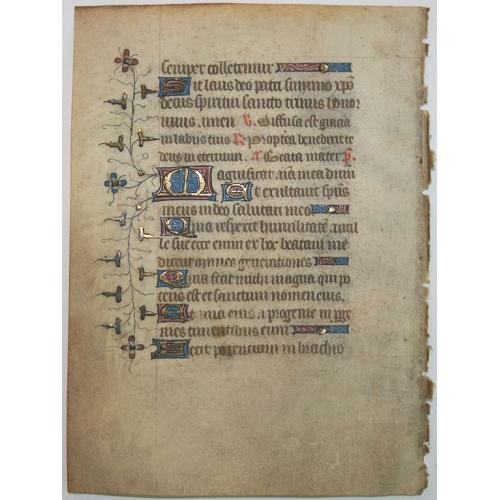 semper colletemur
Sit laus deo patri summo xpo
decus spiritui sancto trinus honor
unus. amen. V. Diffusa est gracia
in labijs tuis R Proptea benedixit te
deus in eternum. a Beata mater p.
Magnificat. aia mea dnm
Et exultauit sps
meus in deo salutari meo
Quia respexit humilitatē ancil
le sue ecce enim ex hoc beatam me
dicent omnes generationes
Quia fecit michi magna qui po
tens est et sanctum nomen eius.
Et mia eius a progenie in pge
nies timentibus eum
Fecit potenciam in brachio